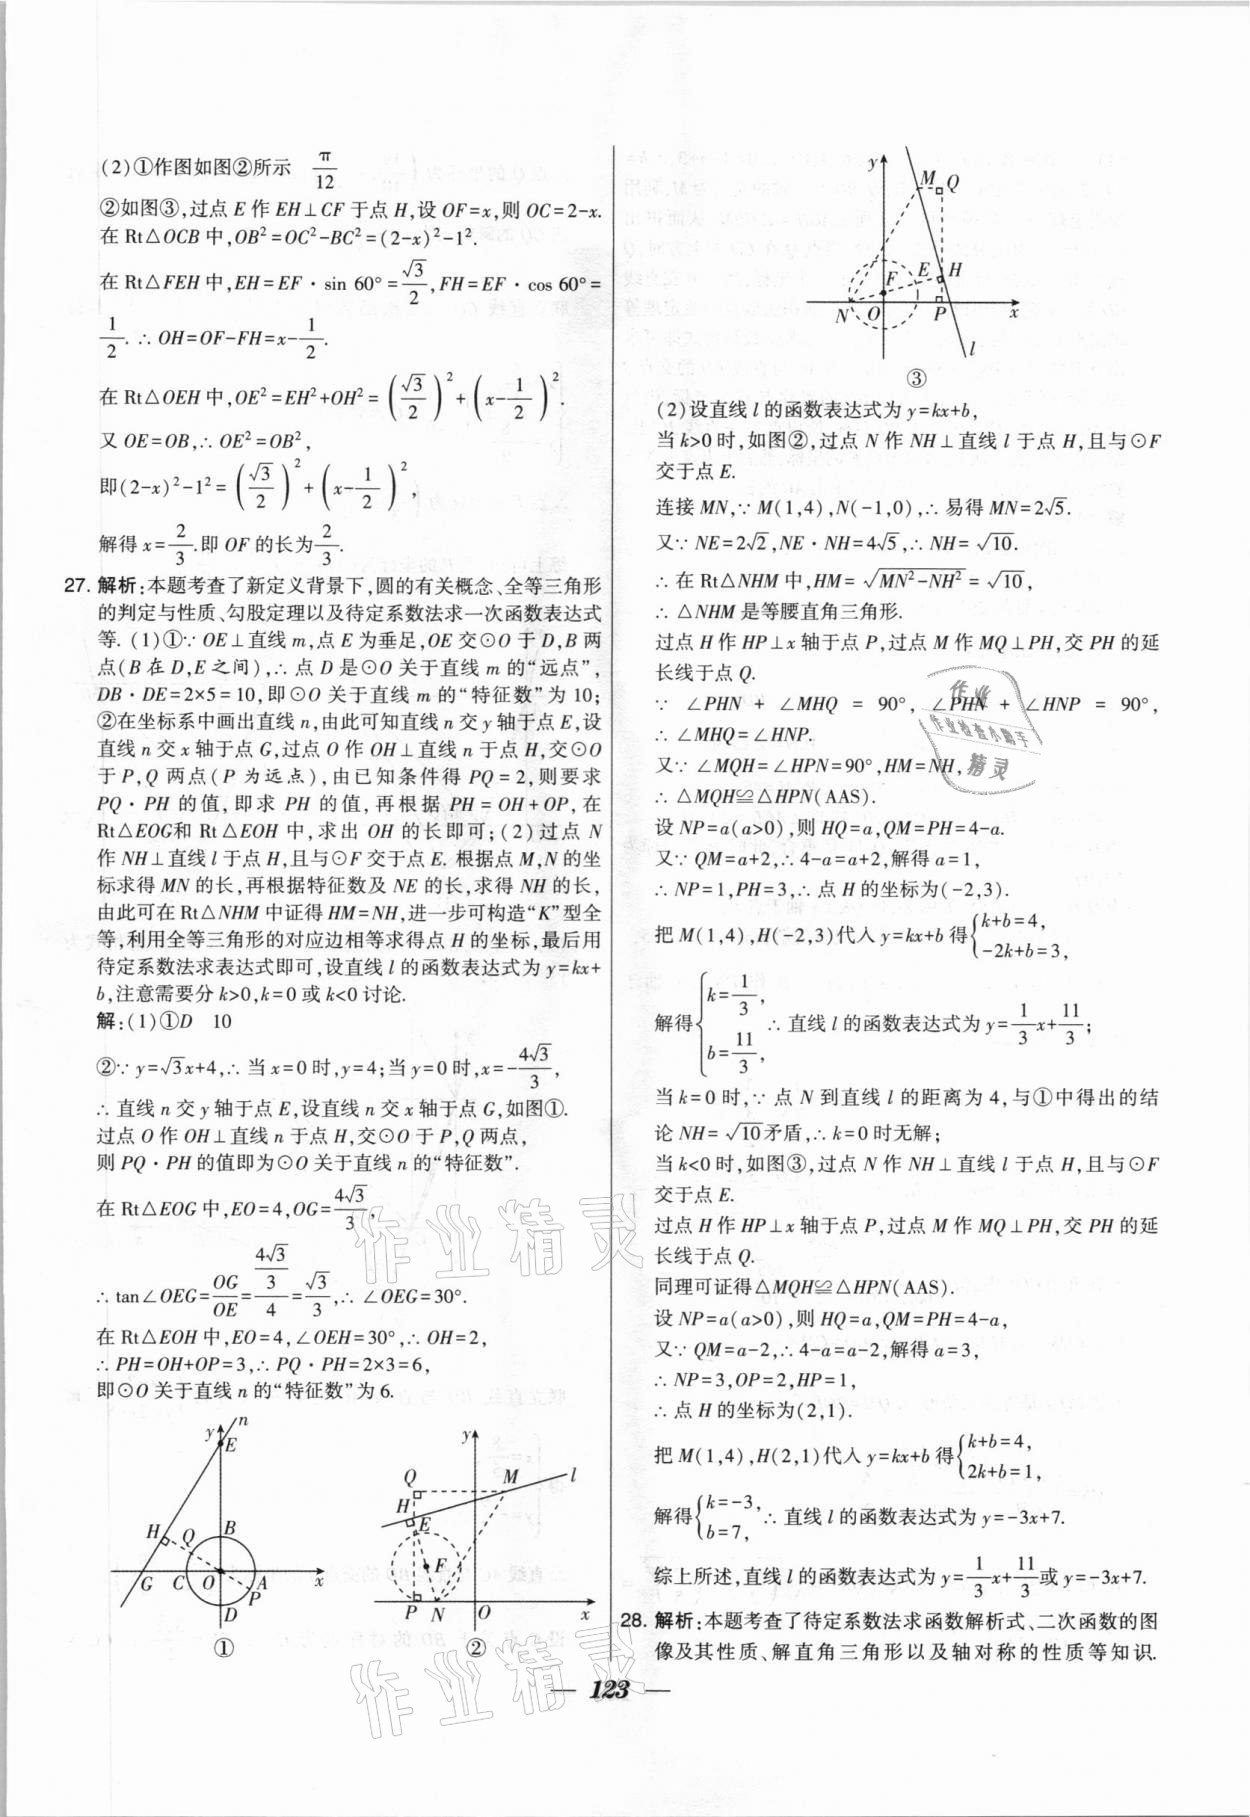 (2)①作图如图②所示 π/12
②如图③,过点 E 作 EH⊥CF 于点 H,设 OF=x,则 OC=2-x.
在 Rt△OCB 中,OB²=OC²-BC²=(2-x)²-1².
在 Rt△FEH 中,EH=EF·sin 60°=√3/2,FH=EF·cos 60°=
1/2.∴OH=OF-FH=x-1/2.
在 Rt△OEH 中,OE²=EH²+OH²=(√3/2)²+(x-1/2)².
又 OE=OB,∴OE²=OB²,
即(2-x)²-1²=(√3/2)²+(x-1/2)²,
解得 x=2/3.即 OF 的长为2/3.
27. 解析:本题考查了新定义背景下,圆的有关概念、全等三角形
的判定与性质、勾股定理以及待定系数法求一次函数表达式
等. (1)①∵OE⊥直线 m,点 E 为垂足,OE 交⊙O 于 D,B 两
点(B 在 D,E 之间),∴点 D 是⊙O 关于直线 m 的“远点”,
DB·DE=2×5=10,即⊙O 关于直线 m 的“特征数”为 10;
②在坐标系中画出直线 n,由此可知直线 n 交 y 轴于点 E,设
直线 n 交 x 轴于点 G,过点 O 作 OH⊥直线 n 于点 H,交⊙O
于 P,Q 两点(P 为远点),由已知条件得 PQ=2,则要求
PQ·PH 的值,即求 PH 的值,再根据 PH=OH+OP,在
Rt△EOG和 Rt△EOH 中,求出 OH 的长即可;(2)过点 N
作 NH⊥直线 l 于点 H,且与⊙F 交于点 E. 根据点 M,N 的坐
标求得 MN 的长,再根据特征数及 NE 的长,求得 NH 的长,
由此可在 Rt△NHM 中证得 HM=NH,进一步可构造“K”型全
等,利用全等三角形的对应边相等求得点 H 的坐标,最后用
待定系数法求表达式即可,设直线 l 的函数表达式为 y=kx+
b,注意需要分 k>0,k=0 或 k<0 讨论.
解:(1)①D 10
②∵y=√3x+4,∴当 x=0 时,y=4;当 y=0 时,x=-4√3/3,
∴直线 n 交 y 轴于点 E,设直线 n 交 x 轴于点 G,如图①.
过点 O 作 OH⊥直线 n 于点 H,交⊙O 于 P,Q 两点,
则 PQ·PH 的值即为⊙O 关于直线 n 的“特征数”.
在 Rt△EOG 中,EO=4,OG=4√3/3,
∴tan∠OEG=OG/OE=(4√3/3)/4=√3/3,∴∠OEG=30°.
在 Rt△EOH 中,EO=4,∠OEH=30°,∴OH=2,
∴PH=OH+OP=3,∴PQ·PH=2×3=6,
即⊙O 关于直线 n 的“特征数”为 6.
y n
E
H Q B
G C O A x
P
D
①
y
Q M l
H
E
F
P N O x
②
y
M Q
F E H
N O P x
l
③
(2)设直线 l 的函数表达式为 y=kx+b,
当 k>0 时,如图②,过点 N 作 NH⊥直线 l 于点 H,且与⊙F
交于点 E.
连接 MN,∵M(1,4),N(-1,0),∴易得 MN=2√5.
又∵NE=2√2,NE·NH=4√5,∴NH=√10.
∴在 Rt△NHM 中,HM=√(MN²-NH²)=√10,
∴△NHM 是等腰直角三角形.
过点 H 作 HP⊥x 轴于点 P,过点 M 作 MQ⊥PH,交 PH 的延
长线于点 Q.
∵∠PHN + ∠MHQ = 90°,∠PHN + ∠HNP = 90°,
∴∠MHQ=∠HNP.
又∵∠MQH=∠HPN=90°,HM=NH,
∴△MQH≌△HPN(AAS).
设 NP=a(a>0),则 HQ=a,QM=PH=4-a.
又∵QM=a+2,∴4-a=a+2,解得 a=1,
∴NP=1,PH=3,∴点 H 的坐标为(-2,3).
把 M(1,4),H(-2,3)代入 y=kx+b 得{k+b=4, -2k+b=3,
解得{k=1/3, b=11/3, ∴直线 l 的函数表达式为 y=1/3x+11/3;
当 k=0 时,∵点 N 到直线 l 的距离为 4,与①中得出的结
论 NH=√10矛盾,∴k=0 时无解;
当 k<0 时,如图③,过点 N 作 NH⊥直线 l 于点 H,且与⊙F
交于点 E.
过点 H 作 HP⊥x 轴于点 P,过点 M 作 MQ⊥PH,交 PH 的延
长线于点 Q.
同理可证得△MQH≌△HPN(AAS).
设 NP=a(a>0),则 HQ=a,QM=PH=4-a,
又∵QM=a-2,∴4-a=a-2,解得 a=3,
∴NP=3,OP=2,HP=1,
∴点 H 的坐标为(2,1).
把 M(1,4),H(2,1)代入 y=kx+b 得{k+b=4, 2k+b=1,
解得{k=-3, b=7, ∴直线 l 的函数表达式为 y=-3x+7.
综上所述,直线 l 的函数表达式为 y=1/3x+11/3或 y=-3x+7.
28. 解析:本题考查了待定系数法求函数解析式、二次函数的图
像及其性质、解直角三角形以及轴对称的性质等知识.
— 123 —
作业
作业检查小助手
精灵
作业精灵
作业精灵